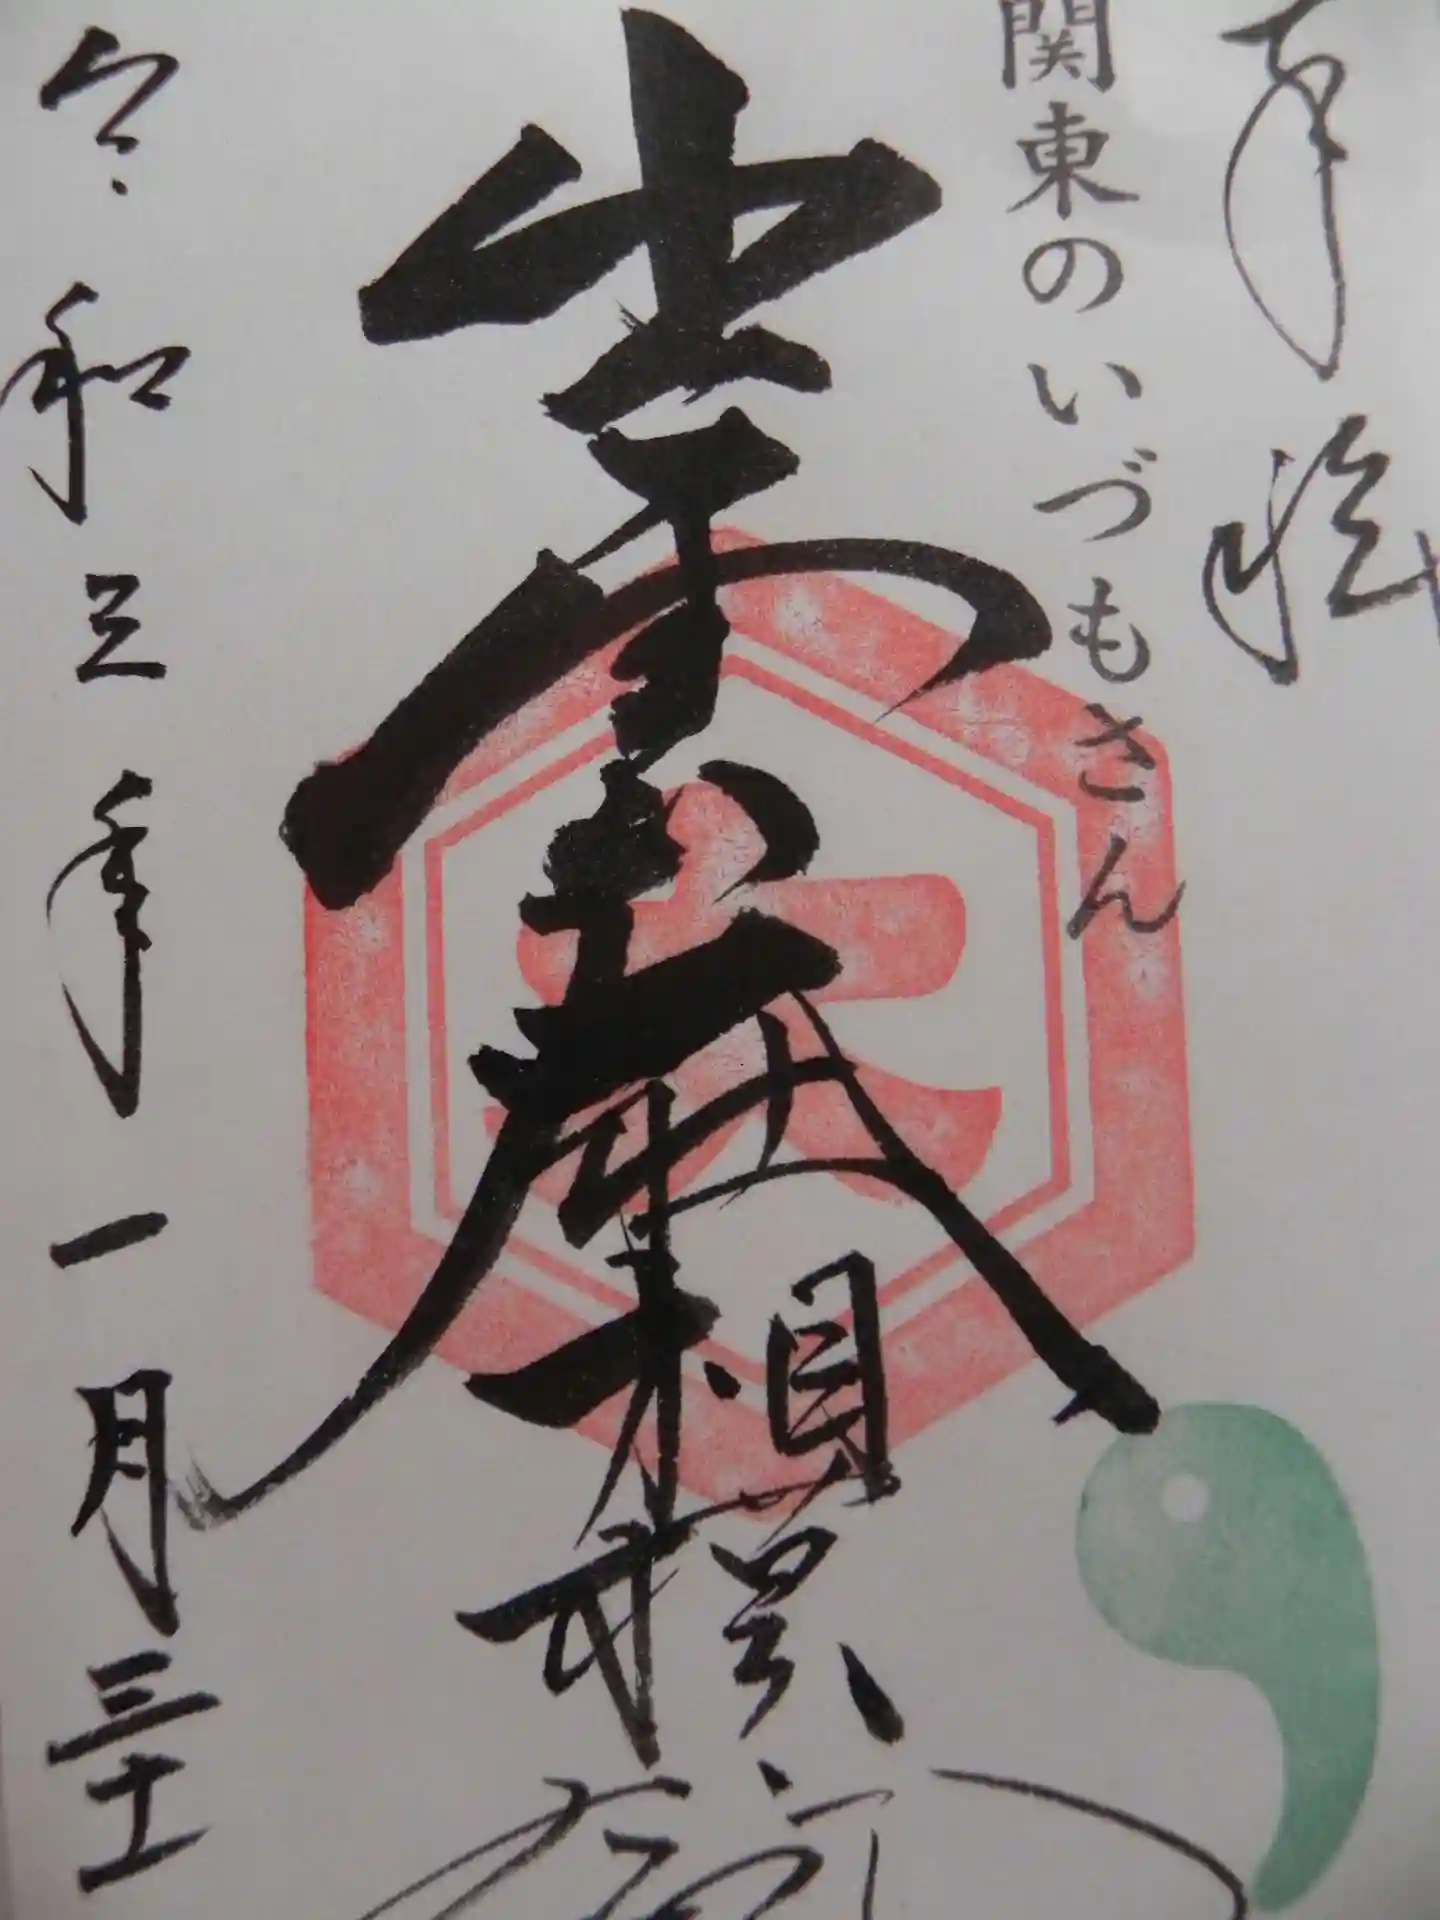 奉拝
関東のいづもさん
出雲大社
相模分祠
大
令和三年一月三十一